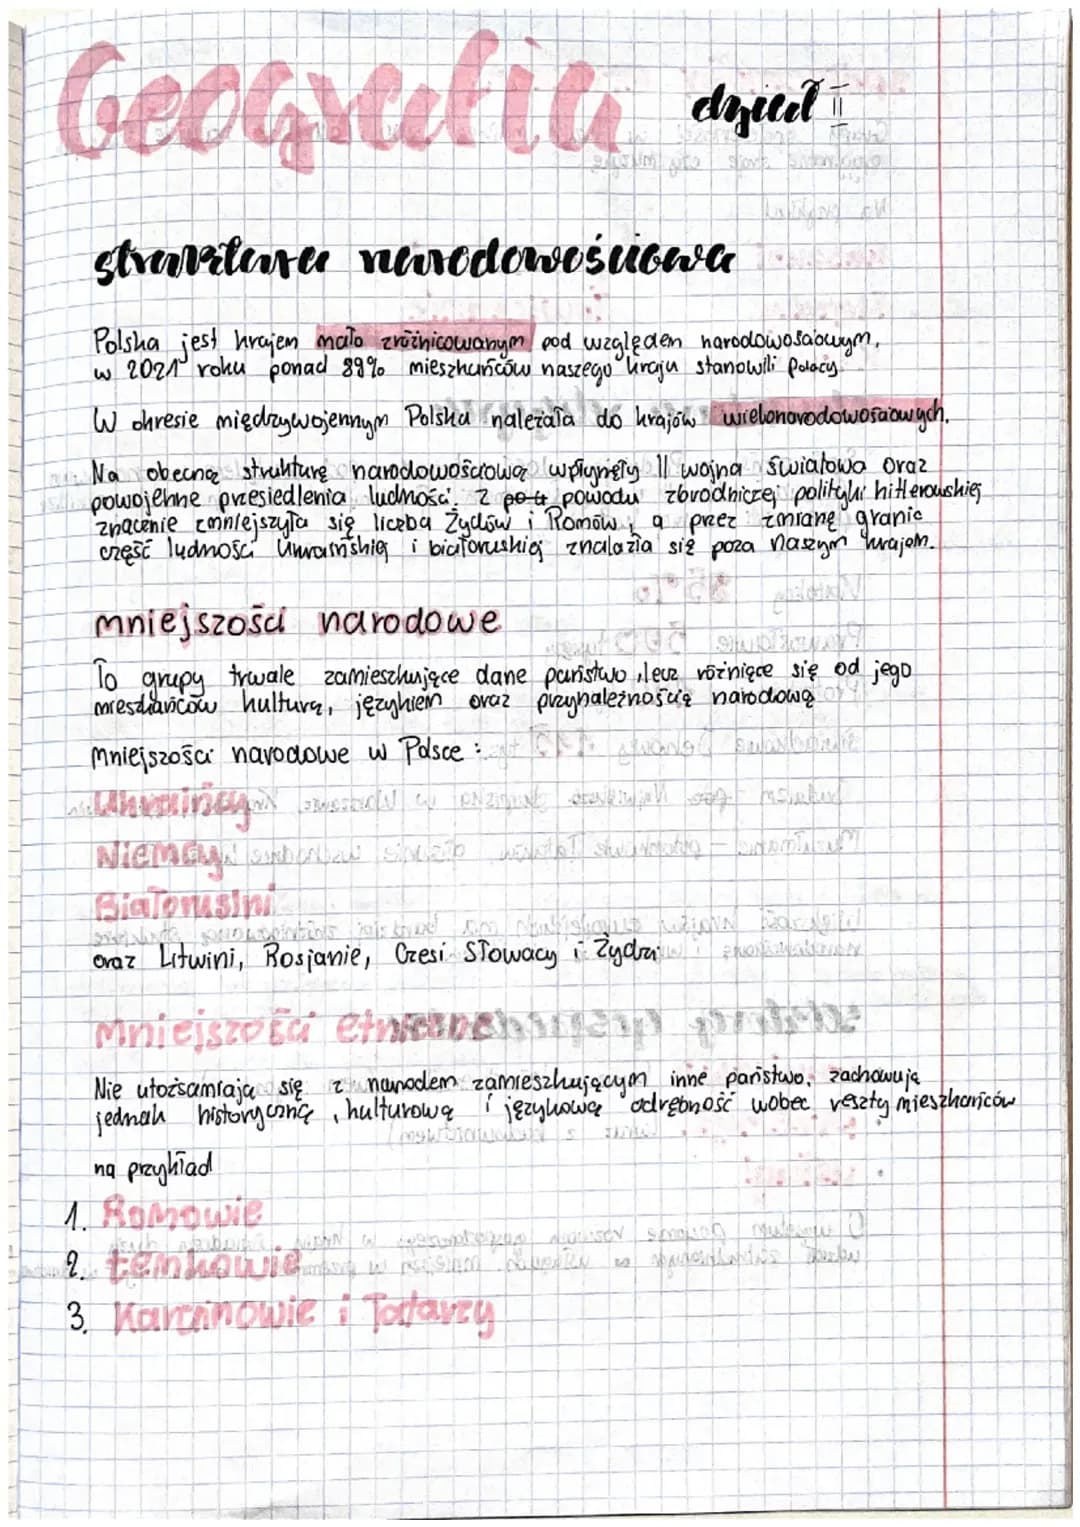 Geografia dział II
struktura narodowościowa
Polska jest krajem mało zróżnicowanym pod względem narodowościowym,
w 2021 roku ponad 99% mieszkańców naszego kraju stanowili Polacy
W okresie międzywojennym Polska należała do krajów wielonarodowościowych.
Na obecną strukturę narodowościową wpłynęły II wojna światowa oraz
powojenne przesiedlenia ludności, z powodu zbrodniczej polityki hitlerowskiej
znacznie zmniejszyła się liczba Żydów i Romów, a przez zmianę granic
część ludności Ukraińskiej i białoruskiej znalazła się poza naszym krajem.
mniejszości narodowe
To grupy trwale zamieszkujące dane państwo, lecz różniące się od jego
mieszkańców kulturą, językiem oraz przynależnością narodową
mniejszości narodowe w Polsce:
Ukraińcy
Niemcy
Białorusini
oraz Litwini, Rosjanie, Czesi Słowacy i Żydzi
Mniejszości etniczne
Nie utożsamiają się z narodem zamieszkującym inne państwo, zachowują
jednak historyczną, kulturową i językową odrębność wobec reszty mieszkańców
na przykład
1. Romowie
2. Łemkowie
3. Karainowie i Tatarzy